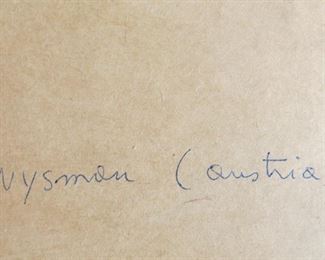 Nysman (austria